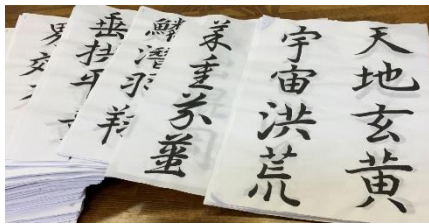 天地玄黄
宇宙洪荒
菜重芥薑
鱗潛羽翔
垂拱平
男效